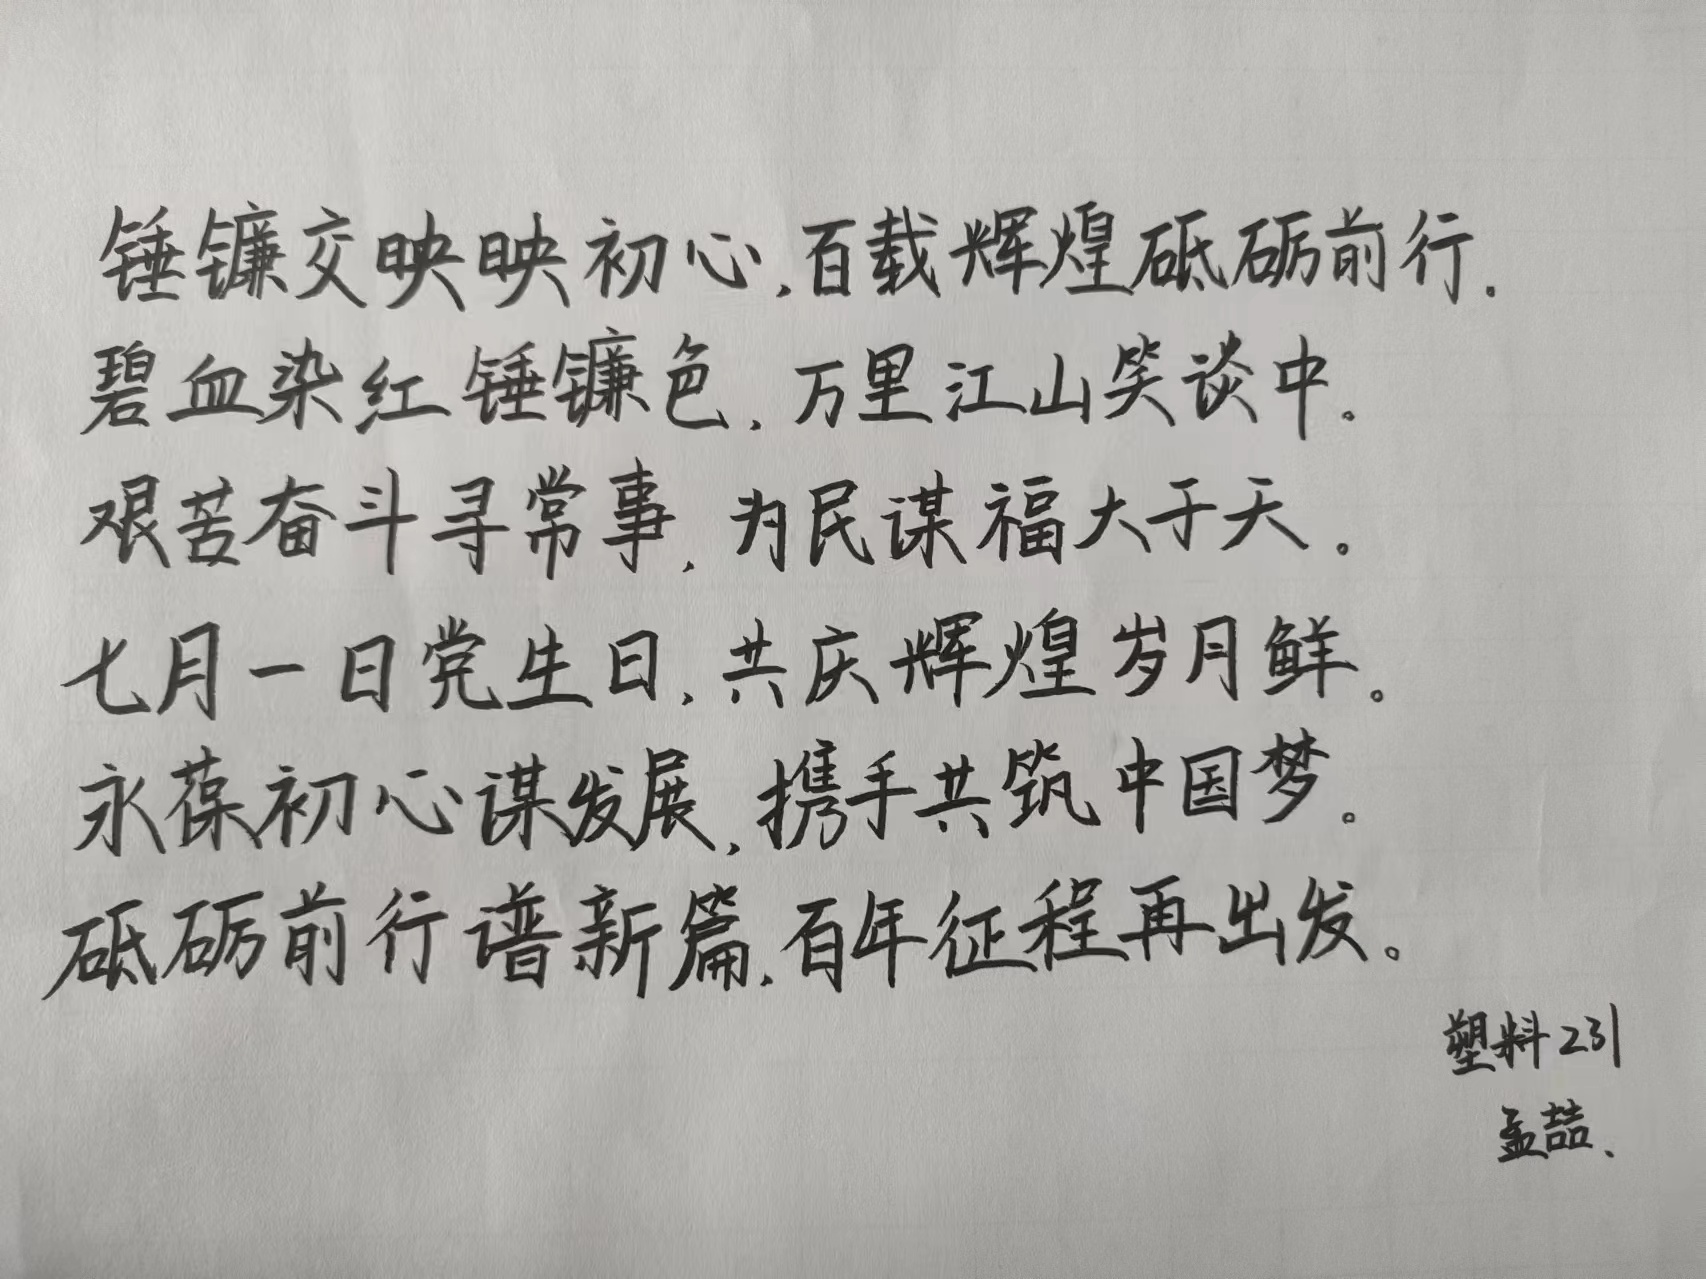 锤镰交映映初心,百载辉煌砥砺前行.
碧血染红锤镰色,万里江山笑谈中。
艰苦奋斗寻常事,为民谋福大于天。
七月一日党生日,共庆辉煌岁月鲜。
永葆初心谋发展,携手共筑中国梦。
砥砺前行谱新篇,百年征程再出发。
塑料231
孟喆、